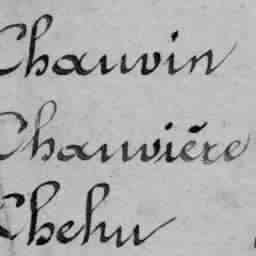 Chauvin
Chauvière
Chehu